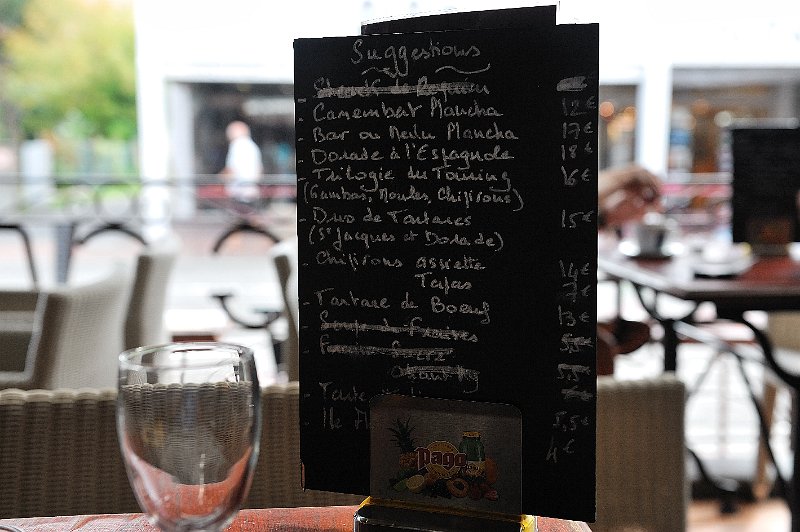 Suggestions
- Camembert Mancha 12€
- Bar ou Merlu Mancha 17€
- Dorade à l'Espagnole 18€
- Trilogie du Touring 16€
(Gambas, Moules, Chipirons)
- Duo de Tartares 15€
(St Jacques et Dorade)
- Chipirons assiette 14€
Tapas 7€
- Tartare de Boeuf 13€
- Soupe de Fraises
- Tarte 5,5€
- Ile 4€
Pago